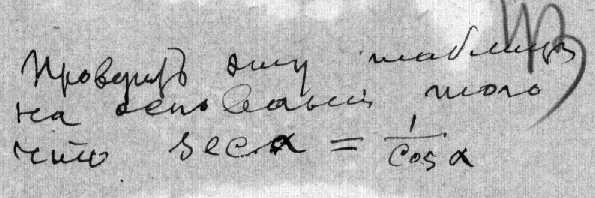 Проверить эту таблицу
на основании того
что sec α = 1/cos α